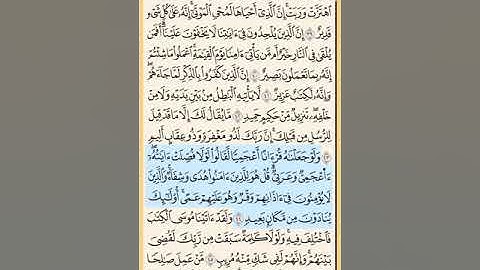 ٱهْتَزَّتْ وَرَبَتْ إِنَّ ٱلَّذِىٓ أَحْيَاهَا لَمُحْىِ ٱلْمَوْتَىٰٓ إِنَّهُۥ عَلَىٰ كُلِّ شَىْءٍ
قَدِيرٌ ٣٩ إِنَّ ٱلَّذِينَ يُلْحِدُونَ فِىٓ ءَايَٰتِنَا لَا يَخْفَوْنَ عَلَيْنَآ أَفَمَن
يُلْقَىٰ فِى ٱلنَّارِ خَيْرٌ أَم مَّن يَأْتِىٓ ءَامِنًا يَوْمَ ٱلْقِيَٰمَةِ ٱعْمَلُوا۟ مَا شِئْتُمْ
إِنَّهُۥ بِمَا تَعْمَلُونَ بَصِيرٌ ٤٠ إِنَّ ٱلَّذِينَ كَفَرُوا۟ بِٱلذِّكْرِ لَمَّا جَآءَهُمْ
وَإِنَّهُۥ لَكِتَٰبٌ عَزِيزٌ ٤١ لَّا يَأْتِيهِ ٱلْبَٰطِلُ مِنۢ بَيْنِ يَدَيْهِ وَلَا مِنْ
خَلْفِهِۦ تَنزِيلٌ مِّنْ حَكِيمٍ حَمِيدٍ ٤٢ مَّا يُقَالُ لَكَ إِلَّا مَا قَدْ قِيلَ
لِلرُّسُلِ مِن قَبْلِكَ إِنَّ رَبَّكَ لَذُو مَغْفِرَةٍ وَذُو عِقَابٍ أَلِيمٍ
٤٣ وَلَوْ جَعَلْنَٰهُ قُرْءَانًا أَعْجَمِيًّا لَّقَالُوا۟ لَوْلَا فُصِّلَتْ ءَايَٰتُهُۥٓ
ءَا۬عْجَمِىٌّ وَعَرَبِىٌّ قُلْ هُوَ لِلَّذِينَ ءَامَنُوا۟ هُدًى وَشِفَآءٌ وَٱلَّذِينَ
لَا يُؤْمِنُونَ فِىٓ ءَاذَانِهِمْ وَقْرٌ وَهُوَ عَلَيْهِمْ عَمًى أُو۟لَٰٓئِكَ
يُنَادَوْنَ مِن مَّكَانٍۭ بَعِيدٍ ٤٤ وَلَقَدْ ءَاتَيْنَا مُوسَى ٱلْكِتَٰبَ
فَٱخْتُلِفَ فِيهِ وَلَوْلَا كَلِمَةٌ سَبَقَتْ مِن رَّبِّكَ لَقُضِىَ
بَيْنَهُمْ وَإِنَّهُمْ لَفِى شَكٍّ مِّنْهُ مُرِيبٍ ٤٥ مَّنْ عَمِلَ صَٰلِحًا